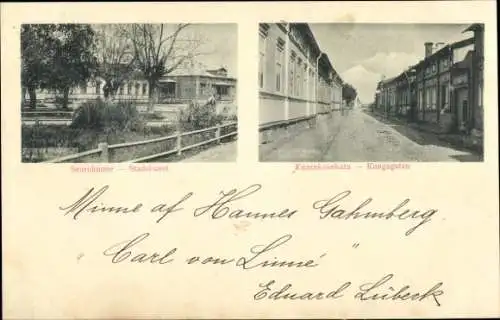 Seurahuone — Stadshuset
Kuninkaankatu — Kungsgatan
Minne af Hannes Gahmberg
"Carl von Linné"
Eduard Lübeck